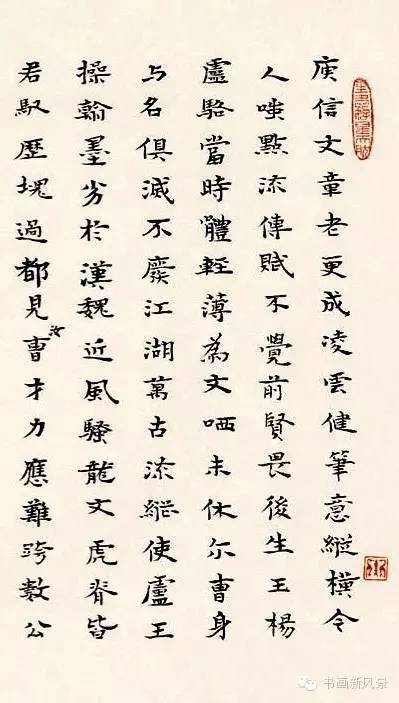 庾信文章老更成凌雲健筆意縱橫今
人嗤點流傳賦不覺前賢畏後生王楊
盧駱當時體輕薄為文哂未休尔曹身
与名俱滅不廢江湖萬古流縱使盧王
操翰墨劣於漢魏近風騷龍文虎脊皆
君馭歷塊過都見汝曹才力應難跨數公
书画新风景